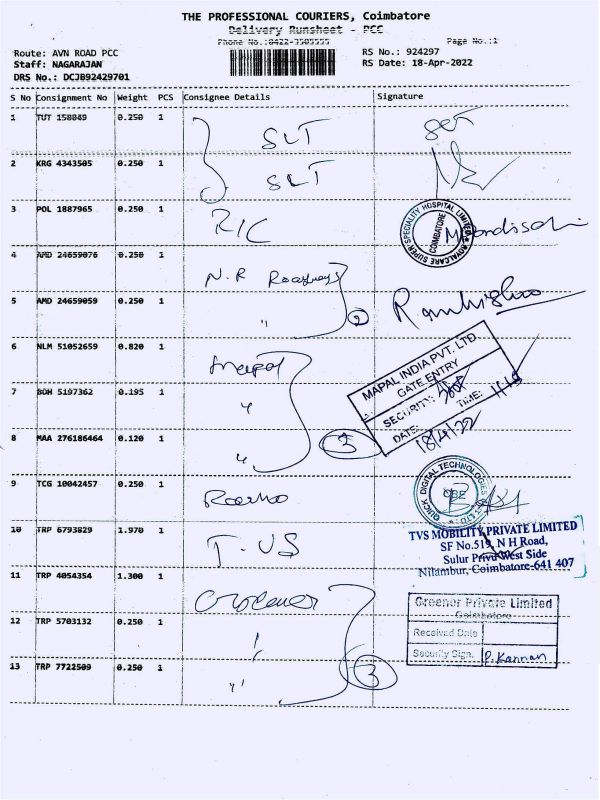 THE PROFESSIONAL COURIERS, Coimbatore
Delivery Runsheet - PCC
Phone No.:0422-3505555 Page No.:1
Route: AVN ROAD PCC RS No.: 924297
Staff: NAGARAJAN RS Date: 18-Apr-2022
DRS No.: DCJB92429701
S No Consignment No Weight PCS Consignee Details Signature
1 TUT 158849 0.250 1 SLT
2 KRG 4343505 0.250 1 SLT
3 POL 1887965 0.250 1 R/C
ROYALCARE SUPER SPECIALITY HOSPITAL LIMITED
COIMBATORE
4 AMD 24659076 0.250 1 N.R Roadways
5 AMD 24659059 0.250 1 " 2
6 NLM 51052659 0.820 1 Mapal
MAPAL INDIA PVT. LTD
GATE ENTRY
SECURITY:
DATE: 18/4/22 TIME:
7 BOH 5197362 0.195 1 "
8 MAA 276186464 0.120 1 " 3
9 TCG 10042457 0.250 1
QUICK DIGITAL TECHNOLOGIES PVT LTD
CBE
10 TRP 6793829 1.970 1 T.VS
TVS MOBILITY PRIVATE LIMITED
SF No.519, N H Road,
Sulur Privu West Side
Nilambur, Coimbatore-641 407
11 TRP 4054354 1.300 1
Greenor Private Limited
Coimbatore
12 TRP 5703132 0.250 1
Received Date
Security Sign. P. Kannan
13 TRP 7722509 0.250 1 " 3